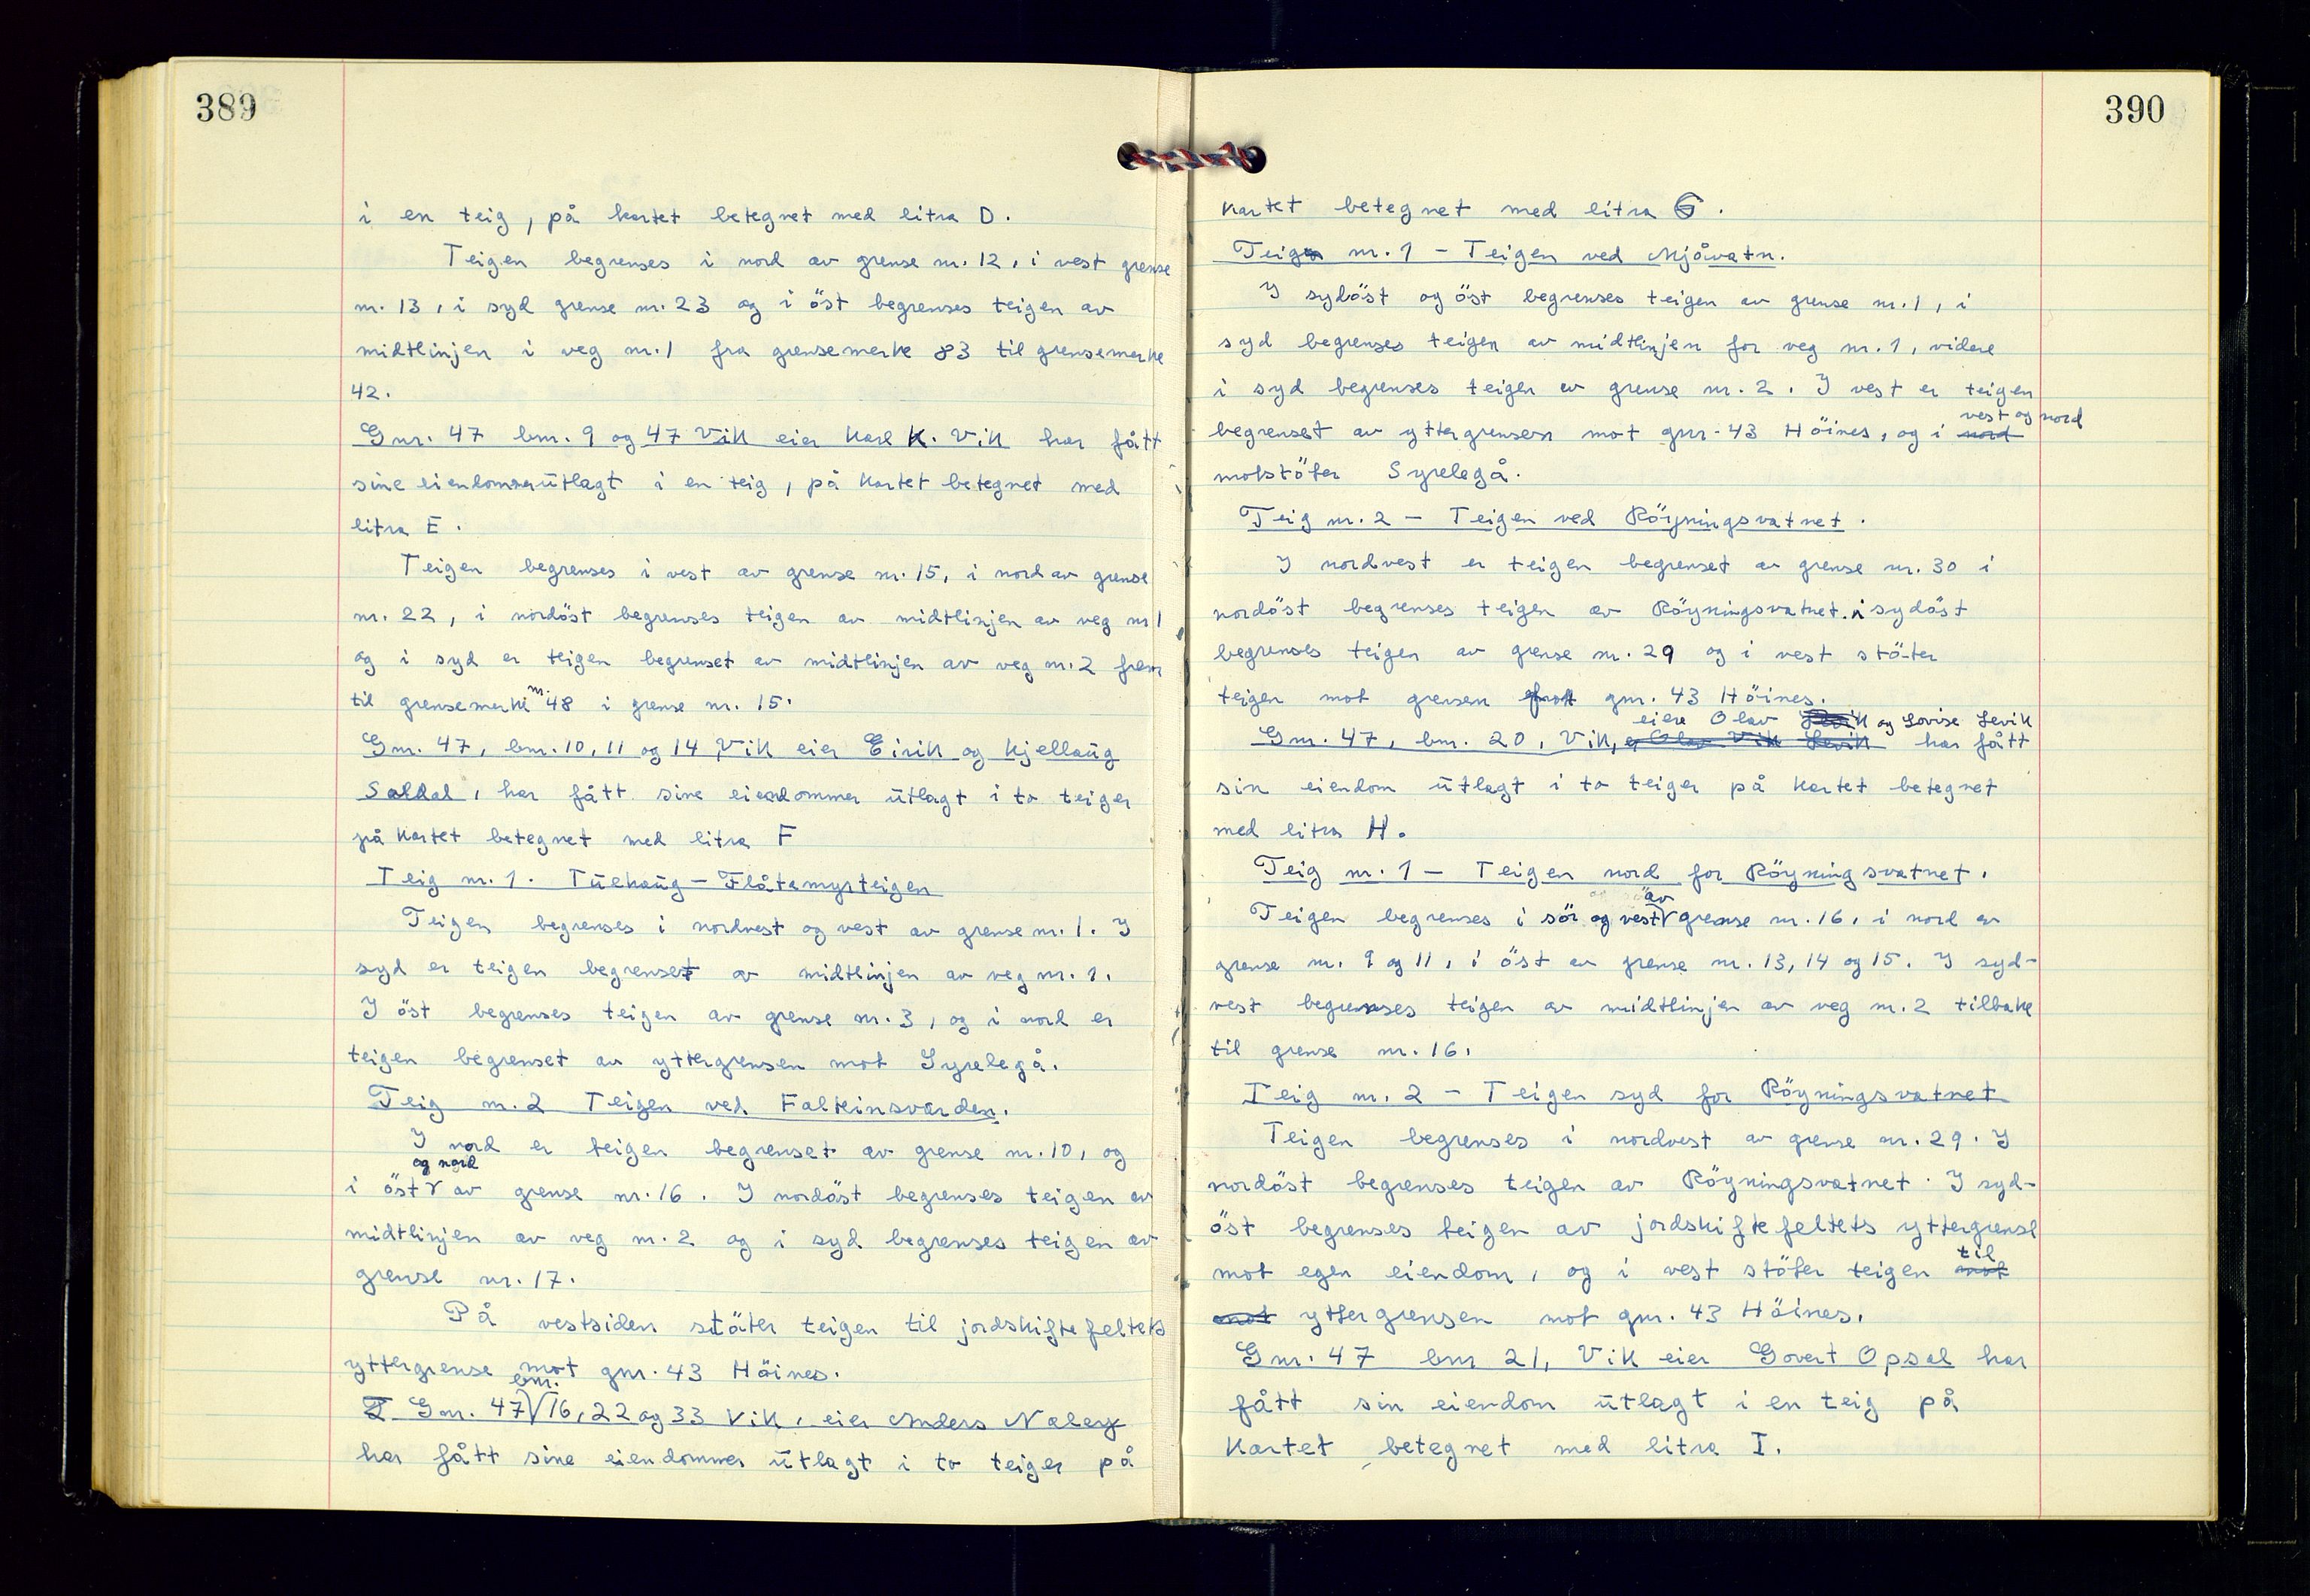 389
i en teig, på kartet betegnet med litra D.
Teigen begrenses i nord av grense nr. 12, i vest grense
nr. 13, i syd grense nr. 23 og i öst begrenses teigen av
midtlinjen i veg nr. 1 fra grensemerke 83 til grensemerke
42.
Gnr. 47 bnr. 9 og 47 Vik eier Karl K. Vik har fått
sine eiendommer utlagt i en teig, på kartet betegnet med
litra E.
Teigen begrenses i vest av grense nr. 15, i nord av grense
nr. 22, i nordöst begrenses teigen av midtlinjen av veg nr 1
og i syd er teigen begrenset av midtlinjen av veg nr. 2 frem
til grensemerke nr. 48 i grense nr. 15.
Gnr. 47, bnr. 10, 11 og 14 Vik eier Eirik og Kjellaug
Saldal, har fått sine eiendommer utlagt i to teiger
på kartet betegnet med litra F
Teig nr. 1. Tuehaug - Flåtemyrteigen
Teigen begrenses i nordvest og vest av grense nr. 1. I
syd er teigen begrenset av midtlinjen av veg nr. 1.
I öst begrenses teigen av grense nr. 3, og i nord er
teigen begrenset av yttergrensen mot Syrelegå.
Teig nr. 2 Teigen ved Falkinsvarden.
I nord er teigen begrenset av grense nr. 10, og
og nord
i öst av grense nr. 16. I nordöst begrenses teigen av
midtlinjen av veg nr. 2 og i syd begrenses teigen av
grense nr. 17.
På vestsiden stöter teigen til jordskiftefeltets
yttergrense mot gnr. 43 Höines.
bnr.
Gnr. 47 16, 22 og 33 Vik, eier Anders Naley
har fått sine eiendommer utlagt i to teiger på
390
kartet betegnet med litra G.
Teig nr. 1 - Teigen ved Mjåvatn.
I sydöst og öst begrenses teigen av grense nr. 1, i
syd begrenses teigen av midtlinjen for veg nr. 1, videre
i syd begrenses teigen av grense nr. 2. I vest er teigen
vest og nord
begrenset av yttergrensen mot gnr. 43 Höines, og i nord
motstöter Syrelegå.
Teig nr. 2 - Teigen ved Röyningsvatnet.
I nordvest er teigen begrenset av grense nr. 30 i
nordöst begrenses teigen av Röyningsvatnet. i sydöst
begrenses teigen av grense nr. 29 og i vest stöter
teigen mot grensen gnr. 43 Höines.
eiere Olav Levik og Lovise Levik
Gnr. 47, bnr. 20, Vik, er Olav Vik Levik har fått
sin eiendom utlagt i to teiger på kartet betegnet
med litra H.
Teig nr. 1 - Teigen nord for Röyningsvatnet.
av
Teigen begrenses i sör og vest grense nr. 16, i nord av
grense nr. 9 og 11, i öst av grense nr. 13, 14 og 15. I syd-
vest begrenses teigen av midtlinjen av veg nr. 2 tilbake
til grense nr. 16.
Teig nr. 2 - Teigen syd for Röyningsvatnet
Teigen begrenses i nordvest av grense nr. 29. I
nordöst begrenses teigen av Röyningsvatnet. I syd-
öst begrenses teigen av jordskiftefeltets yttergrense
til
mot egen eiendom, og i vest stöter teigen mot
mot yttergrensen mot gnr. 43 Höines.
Gnr. 47 bnr 21, Vik eier Govert Opsal har
fått sin eiendom utlagt i en teig på
kartet betegnet med litra I.